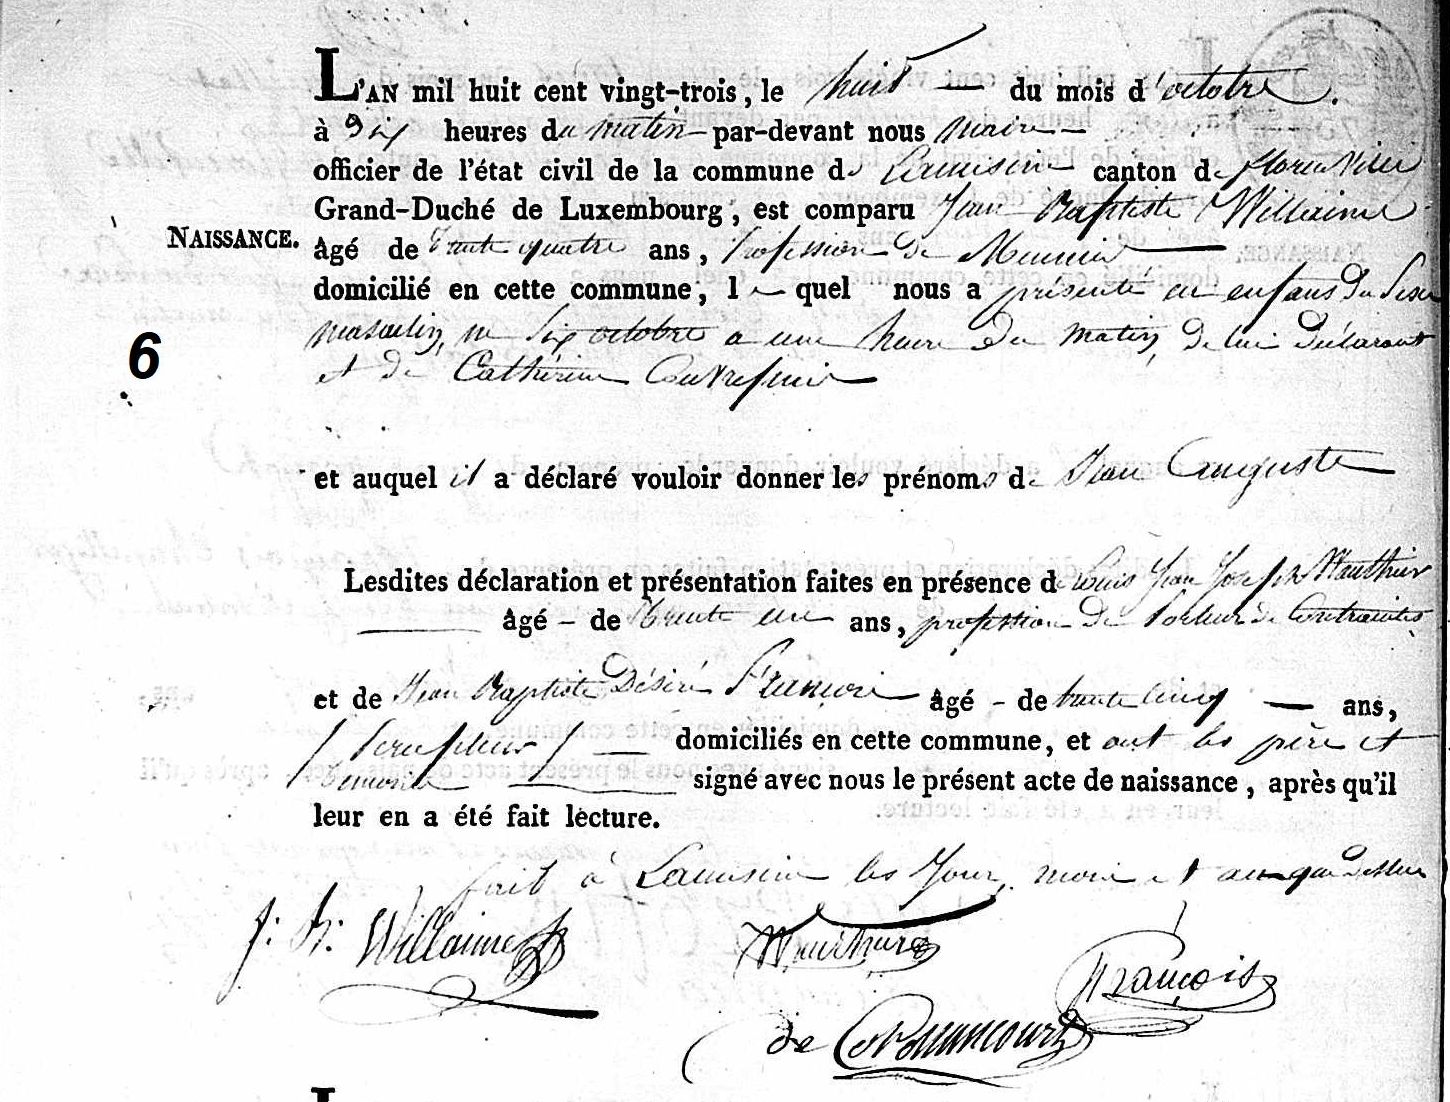 L'AN mil huit cent vingt-trois, le huit du mois d'octobre.
à Dix heures du matin par-devant nous Maire
officier de l'état civil de la commune de canton de Florenville
Grand-Duché de Luxembourg, est comparu Jean Baptiste Willaime
NAISSANCE.
âgé de trente quatre ans, Profession de Meunier
domicilié en cette commune, le quel nous a présenté un enfans du Sexe
6
masculin, né Six octobre a une heure du matin, de lui déclarant
et de Catherine
et auquel il a déclaré vouloir donner les prénoms de Jean Auguste
Lesdites déclaration et présentation faites en présence de Louis Jean Joseph Wauthier
âgé - de trente un ans, profession de Porteur de Contraintes
et de Jean Baptiste Désiré François âgé - de trente cinq ans,
domiciliés en cette commune, et ont les père et
témoins signé avec nous le présent acte de naissance, après qu'il
leur en a été fait lecture.
fait à les Jour, mois et an que dessus
J: B: Willaime
François
de